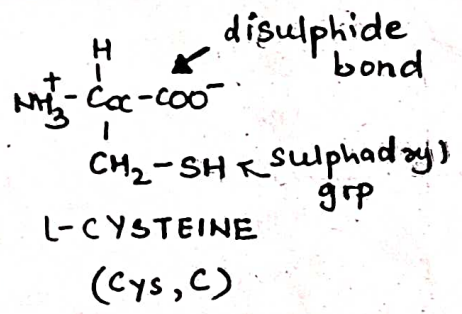 disulphide
bond
H
+
NH3-Cα-COO-
CH2-SH
sulphadryl
grp
L-CYSTEINE
(Cys, C)